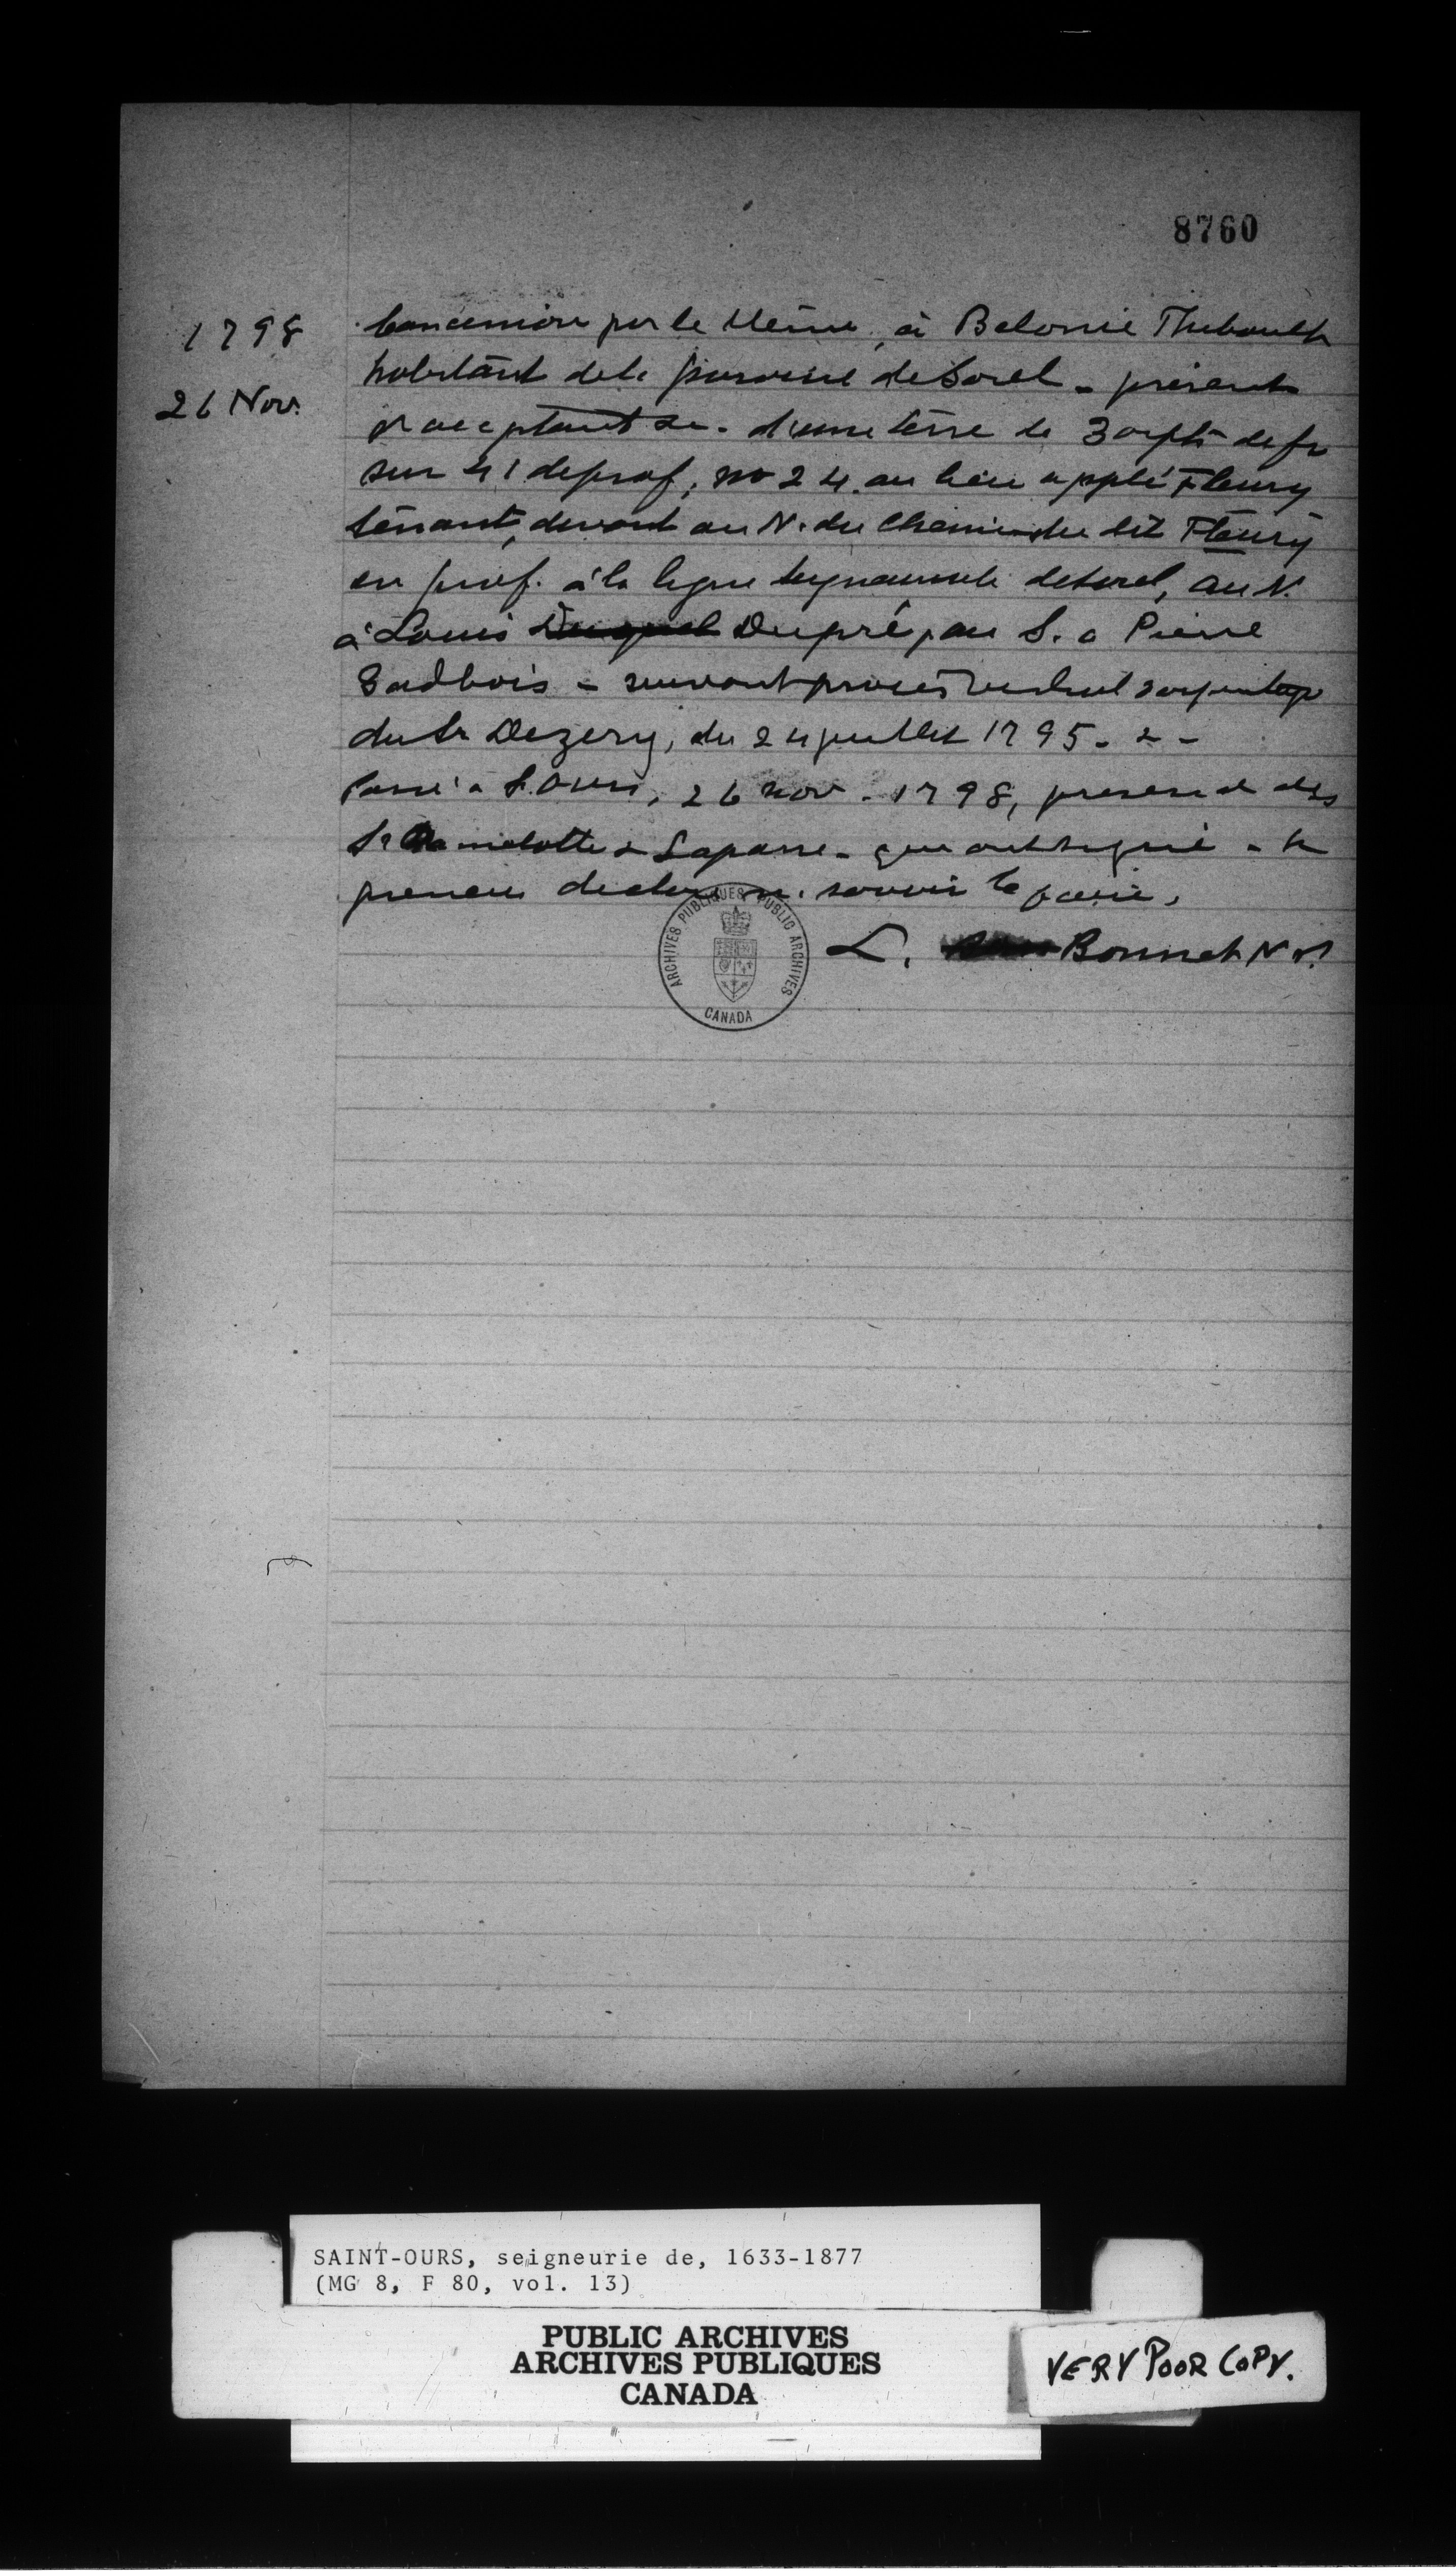 8760
1798
26 Nov.
Concession par le Même, à Belonie Thibault
habitant de la paroisse de Sorel - présent
& acceptant &c. d'une terre de 3 arpts de fr
sur 41 de prof, no 24. au lieu applé Fleury
tenant, devant au N. du chemin du dit Fleury
en prof. à la ligne seigneuriale de Sorel, au N.
à Louis Dupré, au S. a Pierre
Gadbois - suivant procès verbal d'arpentage
du Sr Dezery, du 24 juillet 1795. &-
Passé a S. Ours, 26 nov. 1798, presence des
Sr & Laparre - qui ont signé - le
preneur declar savoir le faire,
L. Bonnet N.P.
ARCHIVES PUBLIQUES PUBLIC ARCHIVES
CANADA
SAINT-OURS, seigneurie de, 1633-1877
(MG 8, F 80, vol. 13)
PUBLIC ARCHIVES
ARCHIVES PUBLIQUES
CANADA
VERY POOR COPY.